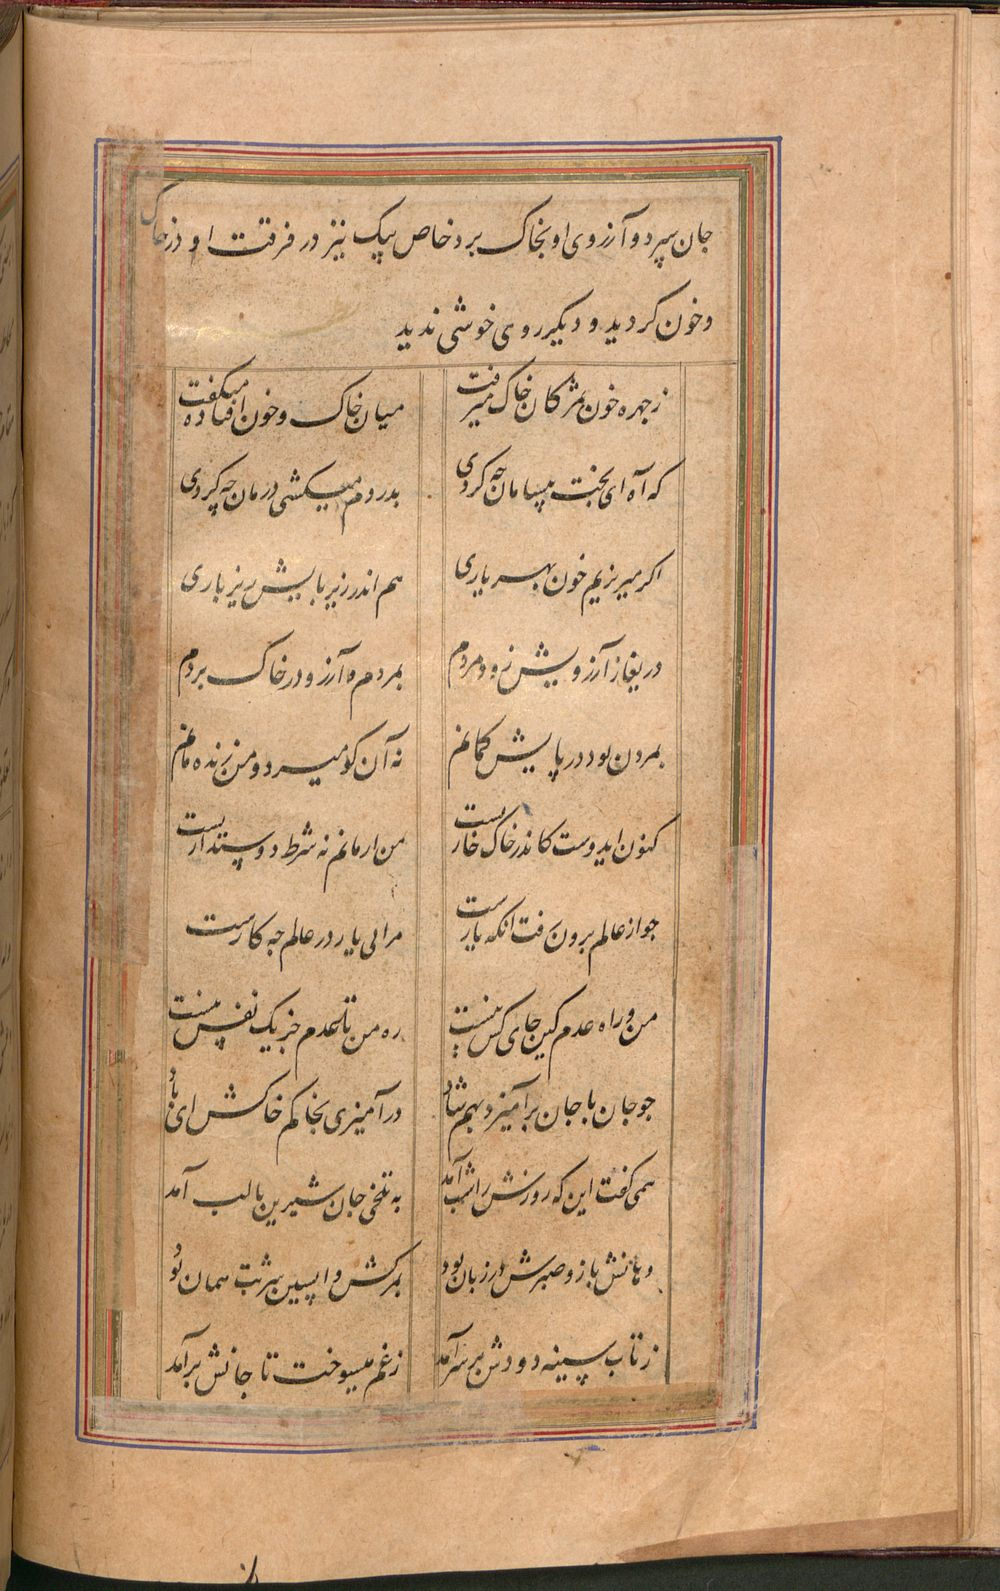 جان سپرد و آرزوی او بخاک برد خاص بیک نیز در فرقت او در خاک
و خون کردید و دیکر روی خوشی ندید
ز چهره خون بمژکان خاک میرفت میان خاک و خون افتاده میکفت
که آه ای بخت بیسامان چه کردی بدردم میکشی درمان چه کردی
اکر میریزیم خون بهر یاری هم اندر زیر پایش ریز باری
دریغا ز آرزویش زود مردم بمردم و آرزو در خاک بردم
بمردن بود در پایش کمانم نه آن کو میرد و من زنده مانم
کنون ای دوست کاندر خاک خارست من ار مانم نه شرط دوستدارست
چو از عالم برون رفت آنکه یارست مرا بی یار در عالم چه کارست
من و راه عدم کین جای کس نیست ره من تا عدم جز یک نفس نیست
چو جان با جان برآمیزد بهم شاد درآمیزی بخاکم خاکش ای باد
همی کفت این که روزش را شب آمد به تلخی جان شیرین با لب آمد
دهانش باز و صبرش در زبان بود بمرکش واپسین شربت همان بود
ز تاب سینه دودش بر سر آمد ز غم میسوخت تا جانش برآمد